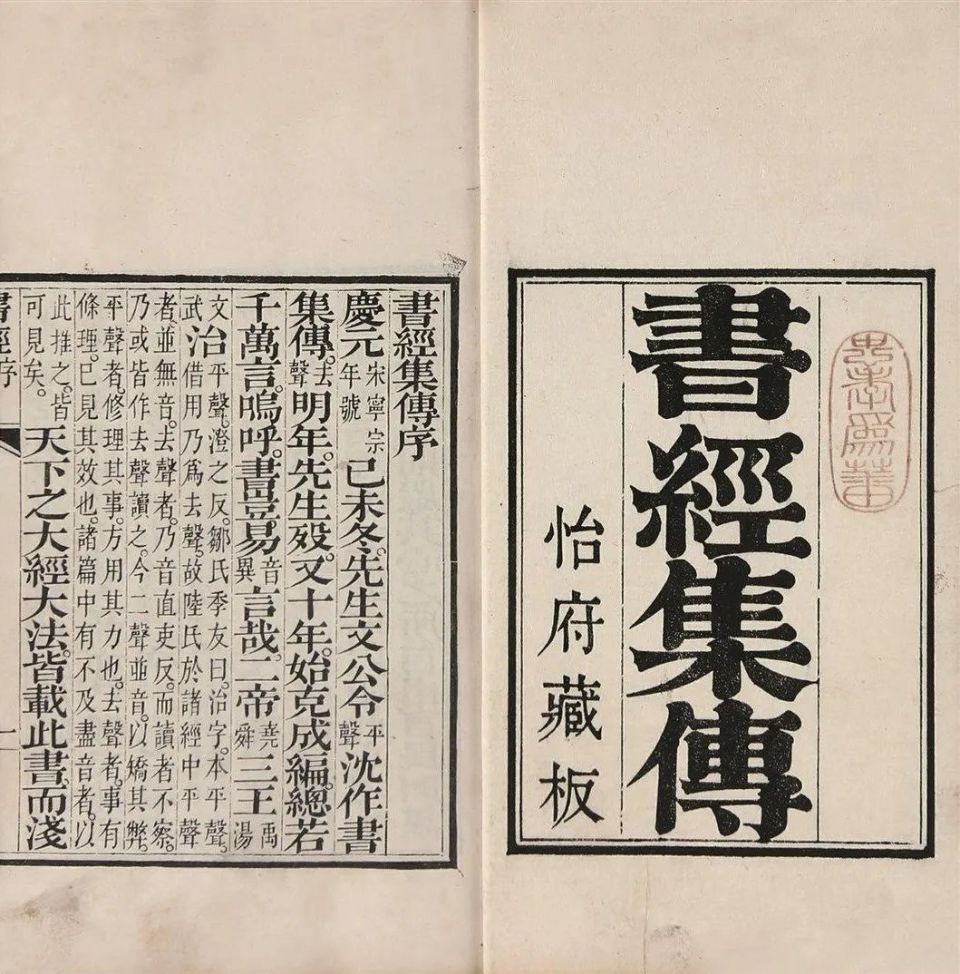 書經集傳
怡府藏板
書經集傳序
慶元宋寧宗年號己未冬。先生文公令平聲沈作書
集傳。去聲明年。先生歿。又十年。始克成編。總若
千萬言。嗚呼。書豈易音異言哉。二帝堯舜三王禹湯
文武治平聲。澄之反。鄒氏季友曰。治字。本平聲。借用乃爲去聲。故陸氏於諸經中平聲
者並無音。去聲者。乃音直吏反。而讀者不察。乃或皆作去聲讀之。今二聲並音。以矯其弊。
平聲者。修理其事。方用其力也。去聲者。事有條理。已見其效也。諸篇中有不及盡音者。以
此推之。皆可見矣。天下之大經大法。皆載此書。而淺
書經序 一